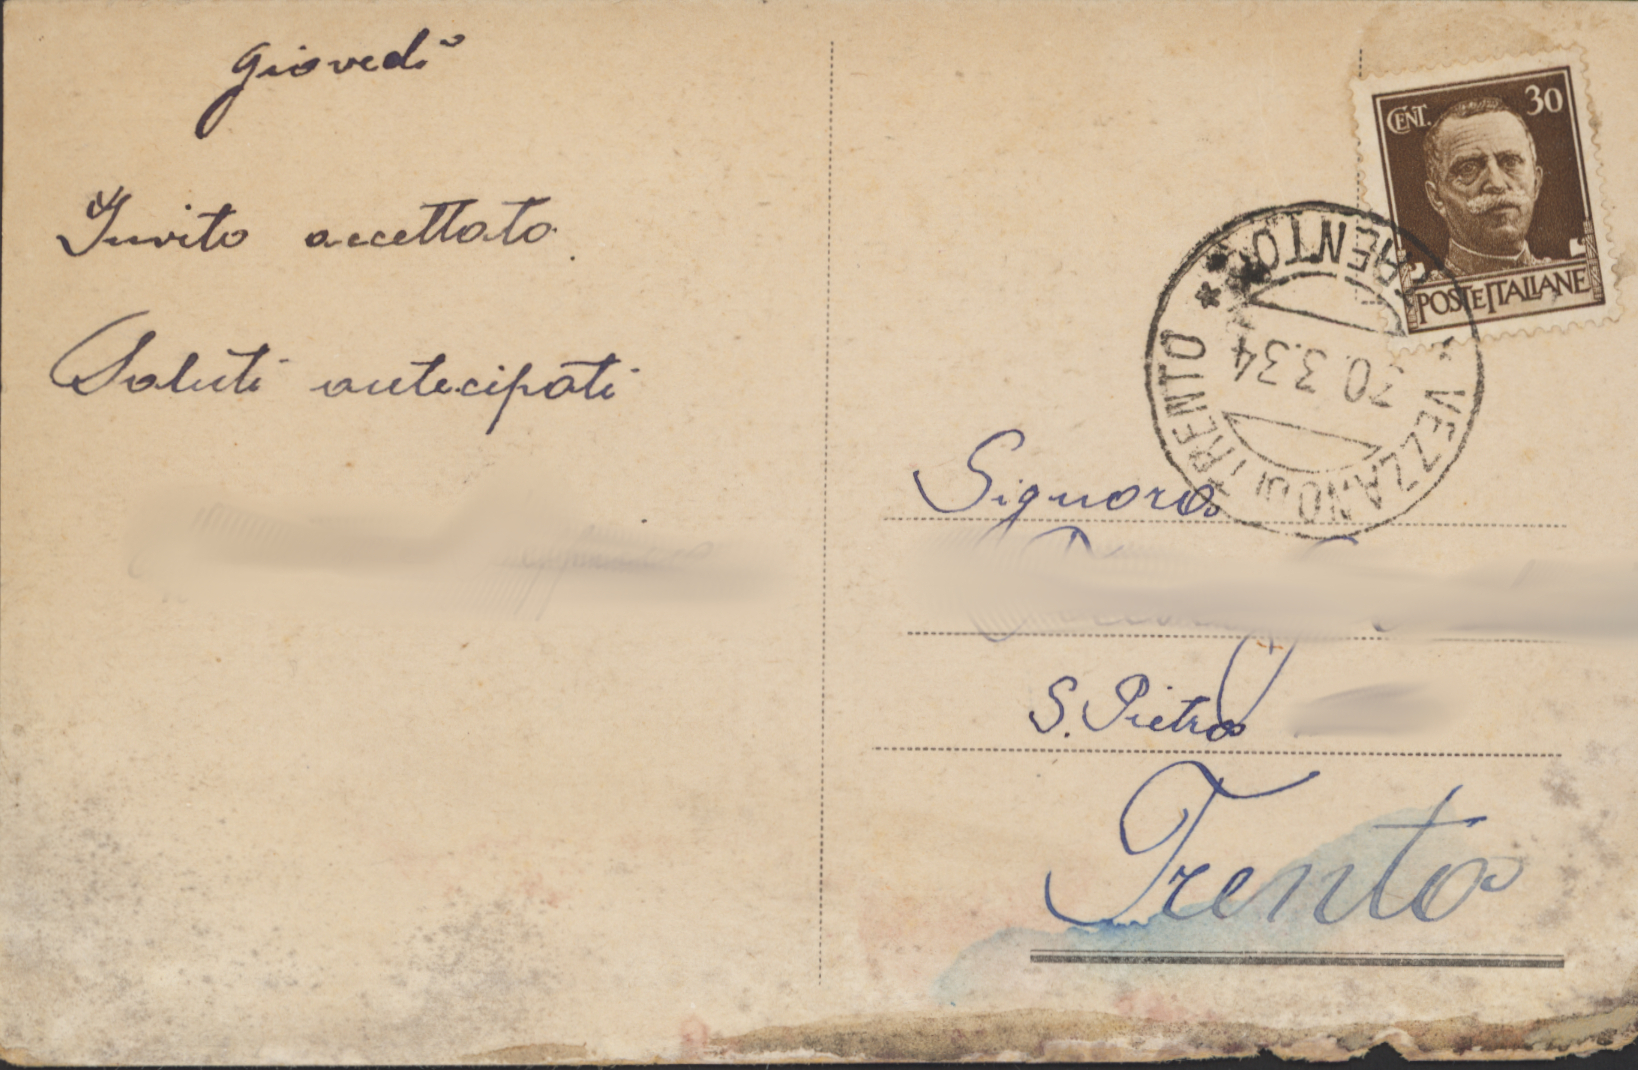 giovedì
Invito accettato.
Saluti antecipati
CENT. 30
POSTE ITALIANE
TRENTO
30.3.34
VEZZANO DI TRENTO
Signora
S. Pietro
Trento